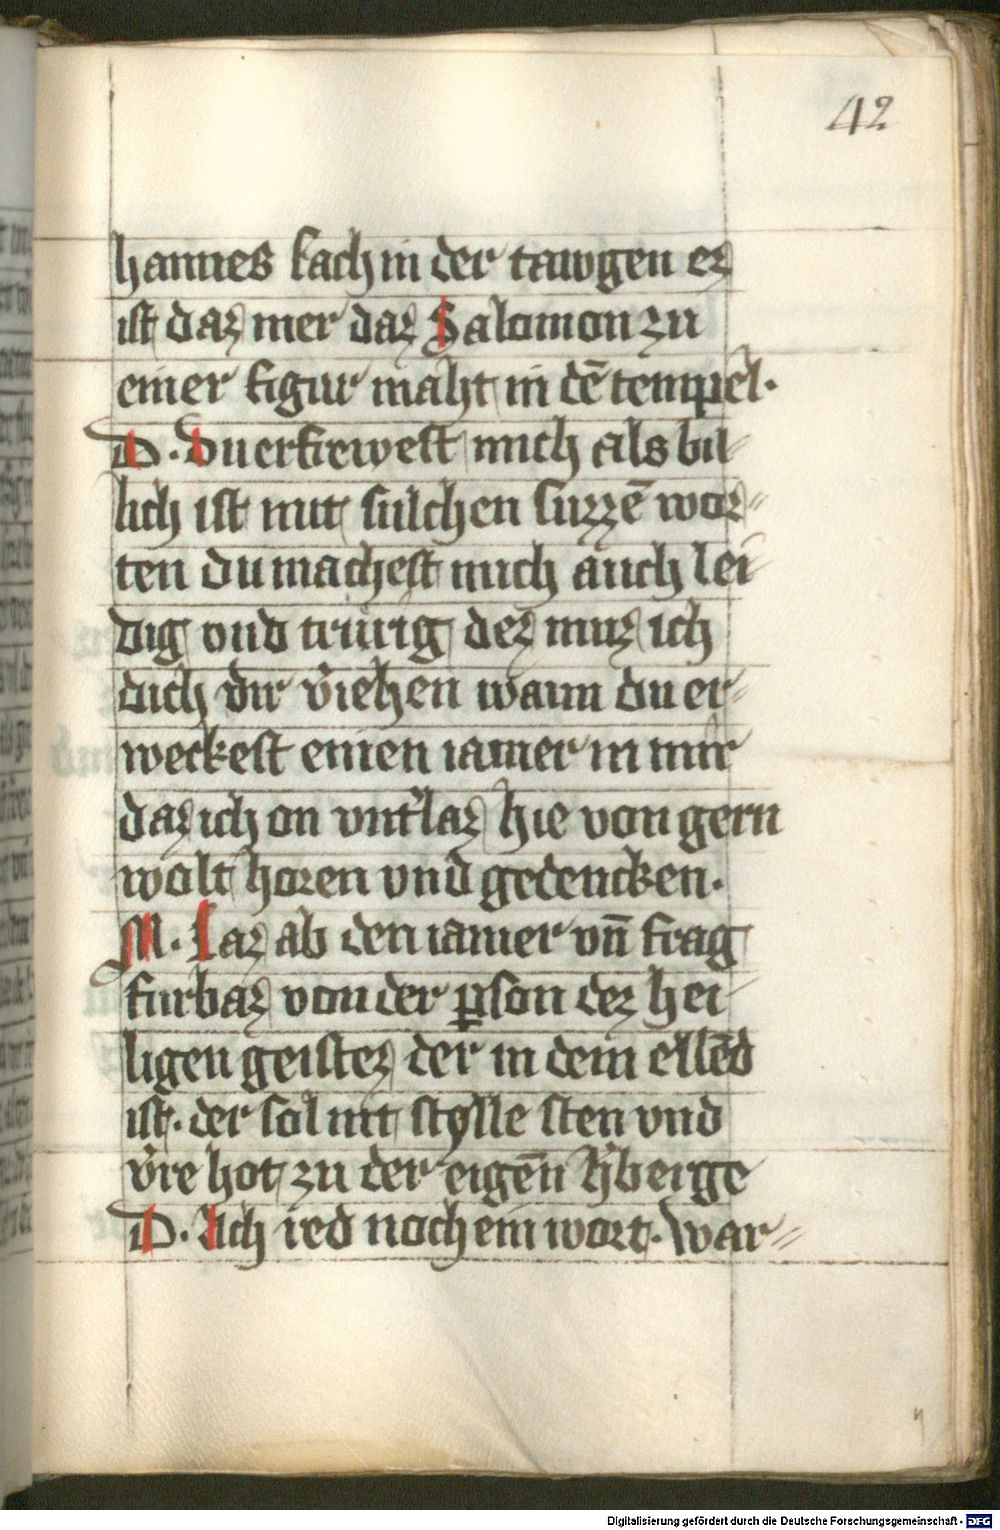 42
hannes sach in der tawgen ez
ist daz mer daz Salomon zu
einer figur maht in dē tempel.
D. Du erfrewest mich als bil-
lich ist mit sulchen suzzē wor-
ten du machest mich auch lei
dig vnd trurig dez muz ich
dich dir v̄iehen wann du er-
weckest einen iamer in mir
daz ich on vnt̄laz hie von gern
wolt horen vnd gedencken.
M. Laz ab den iamer vn̄ frag
furbaz von der ꝑson dez hei-
ligen geistez der in dem ellēd
ist. der sol nit stylle sten vnd
v̄re hot zu der eigēn h̄berge
D. Ich red noch ein wort. War-
Digitalisierung gefördert durch die Deutsche Forschungsgemeinschaft - DFG